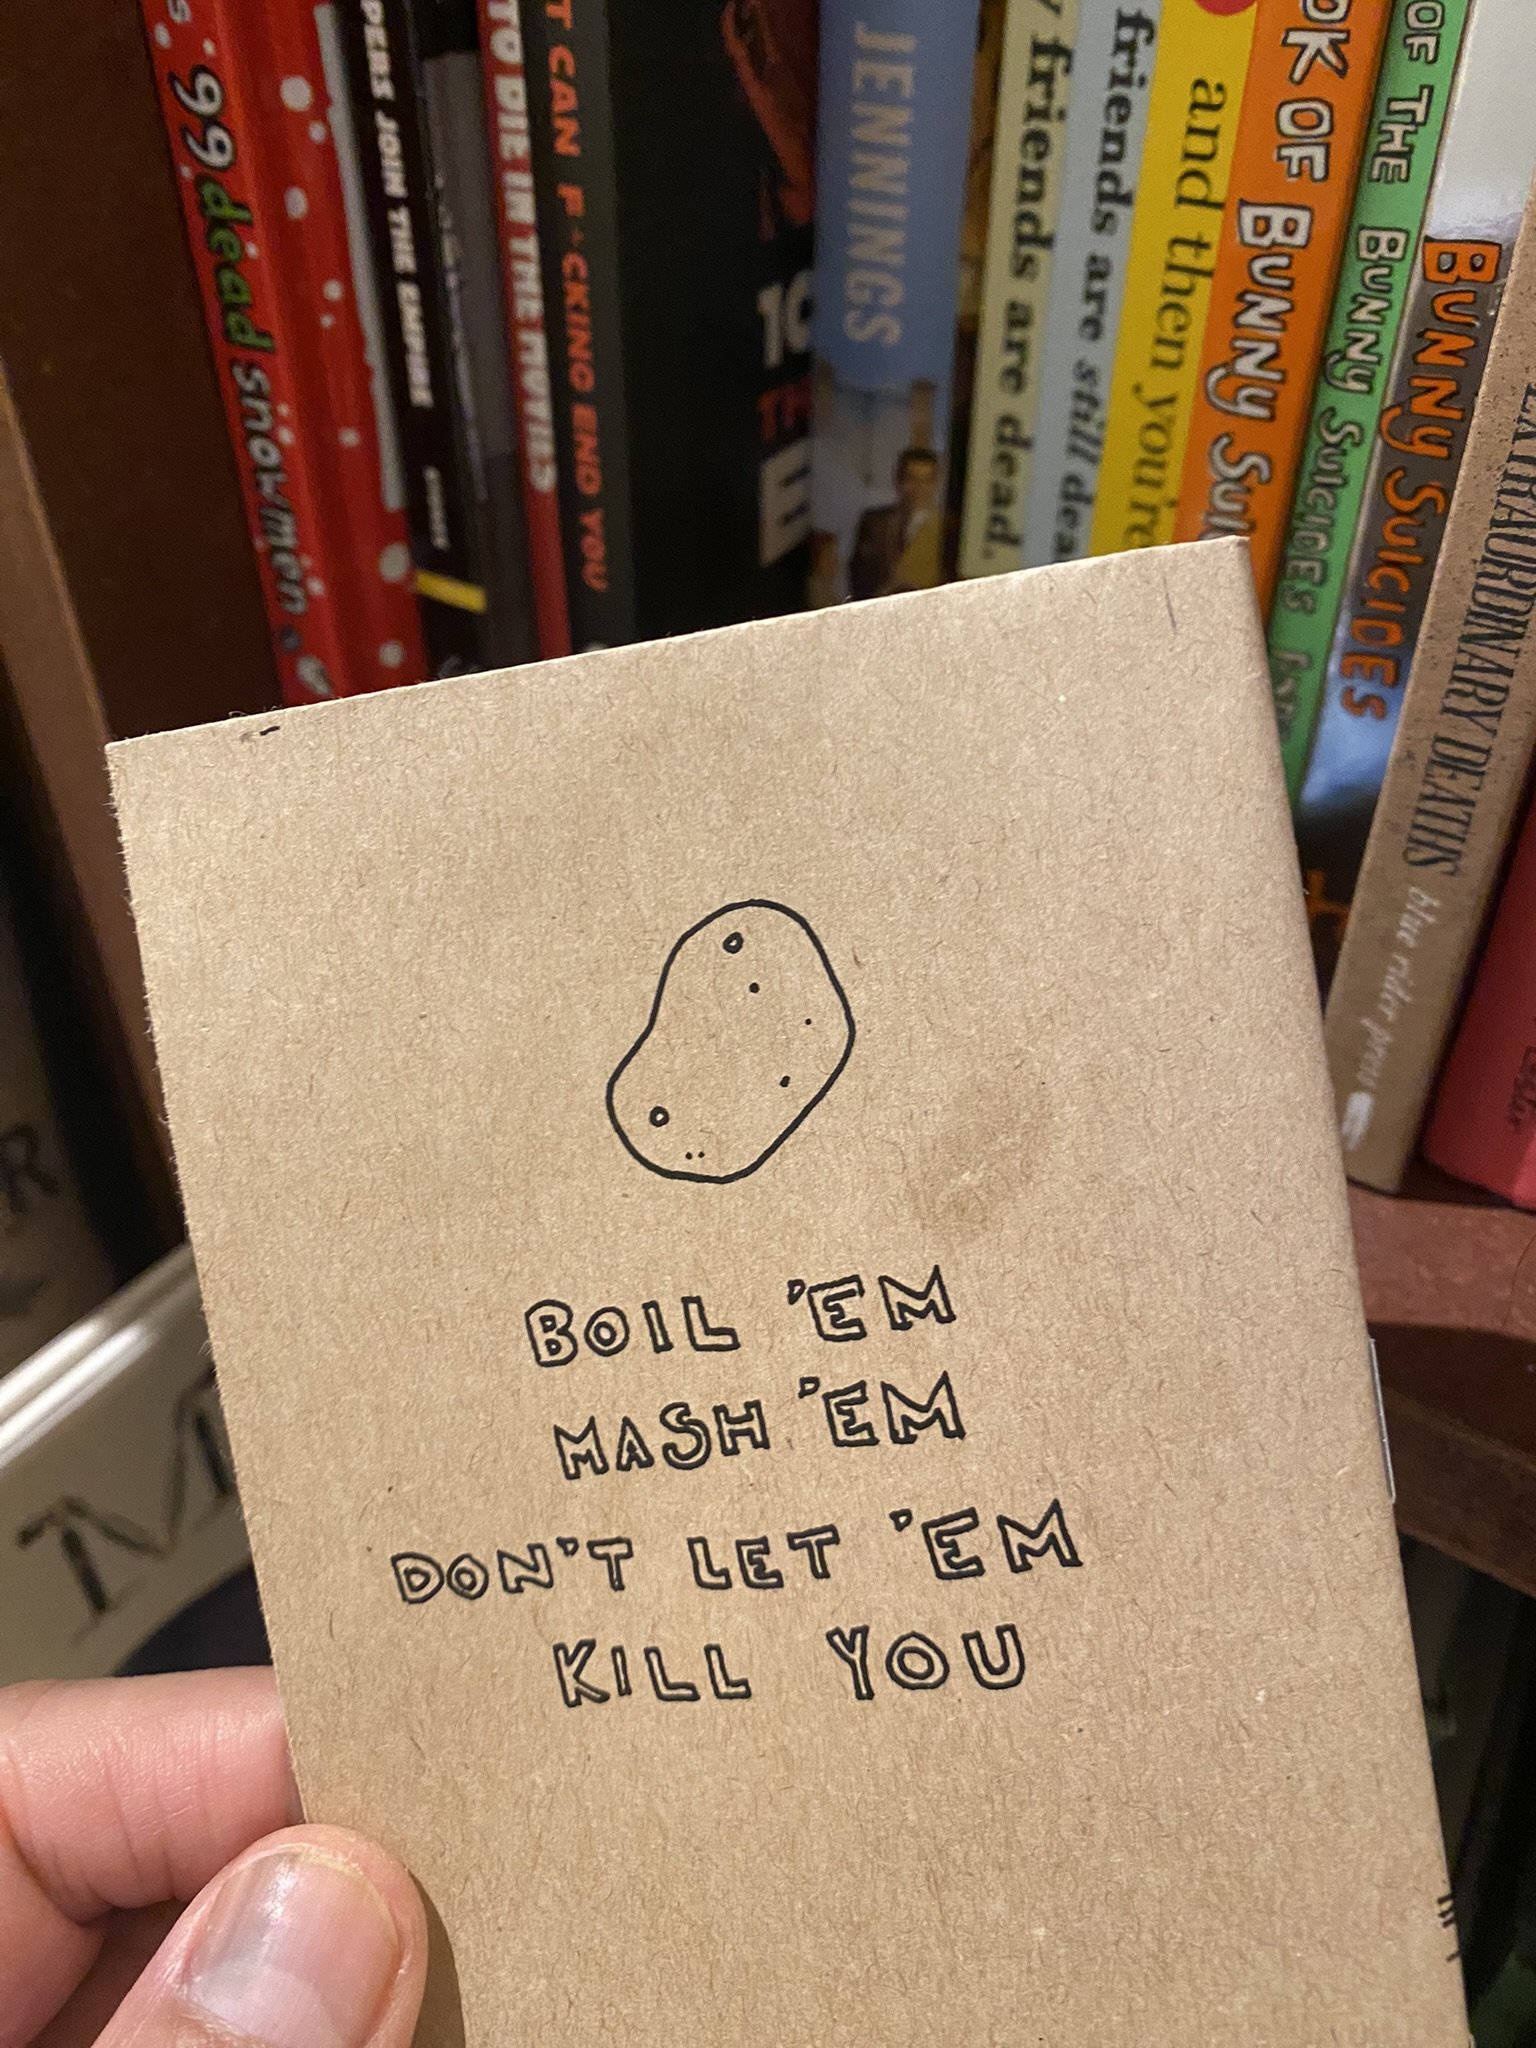 99 dead snowmen
PERS JOIN THE EMPIRE
TO DIE IN THE MOVIES
T CAN F*CKING END YOU
10
E
JENNINGS
y friends are dead.
friends are still dea
and then you're
OK OF BUNNY SUI
OF THE BUNNY SUICIDES
BUNNY SUICIDES
EXTRAORDINARY DEATHS
blue rider press
R
M
BOIL 'EM
MASH 'EM
DON'T LET 'EM
KILL YOU